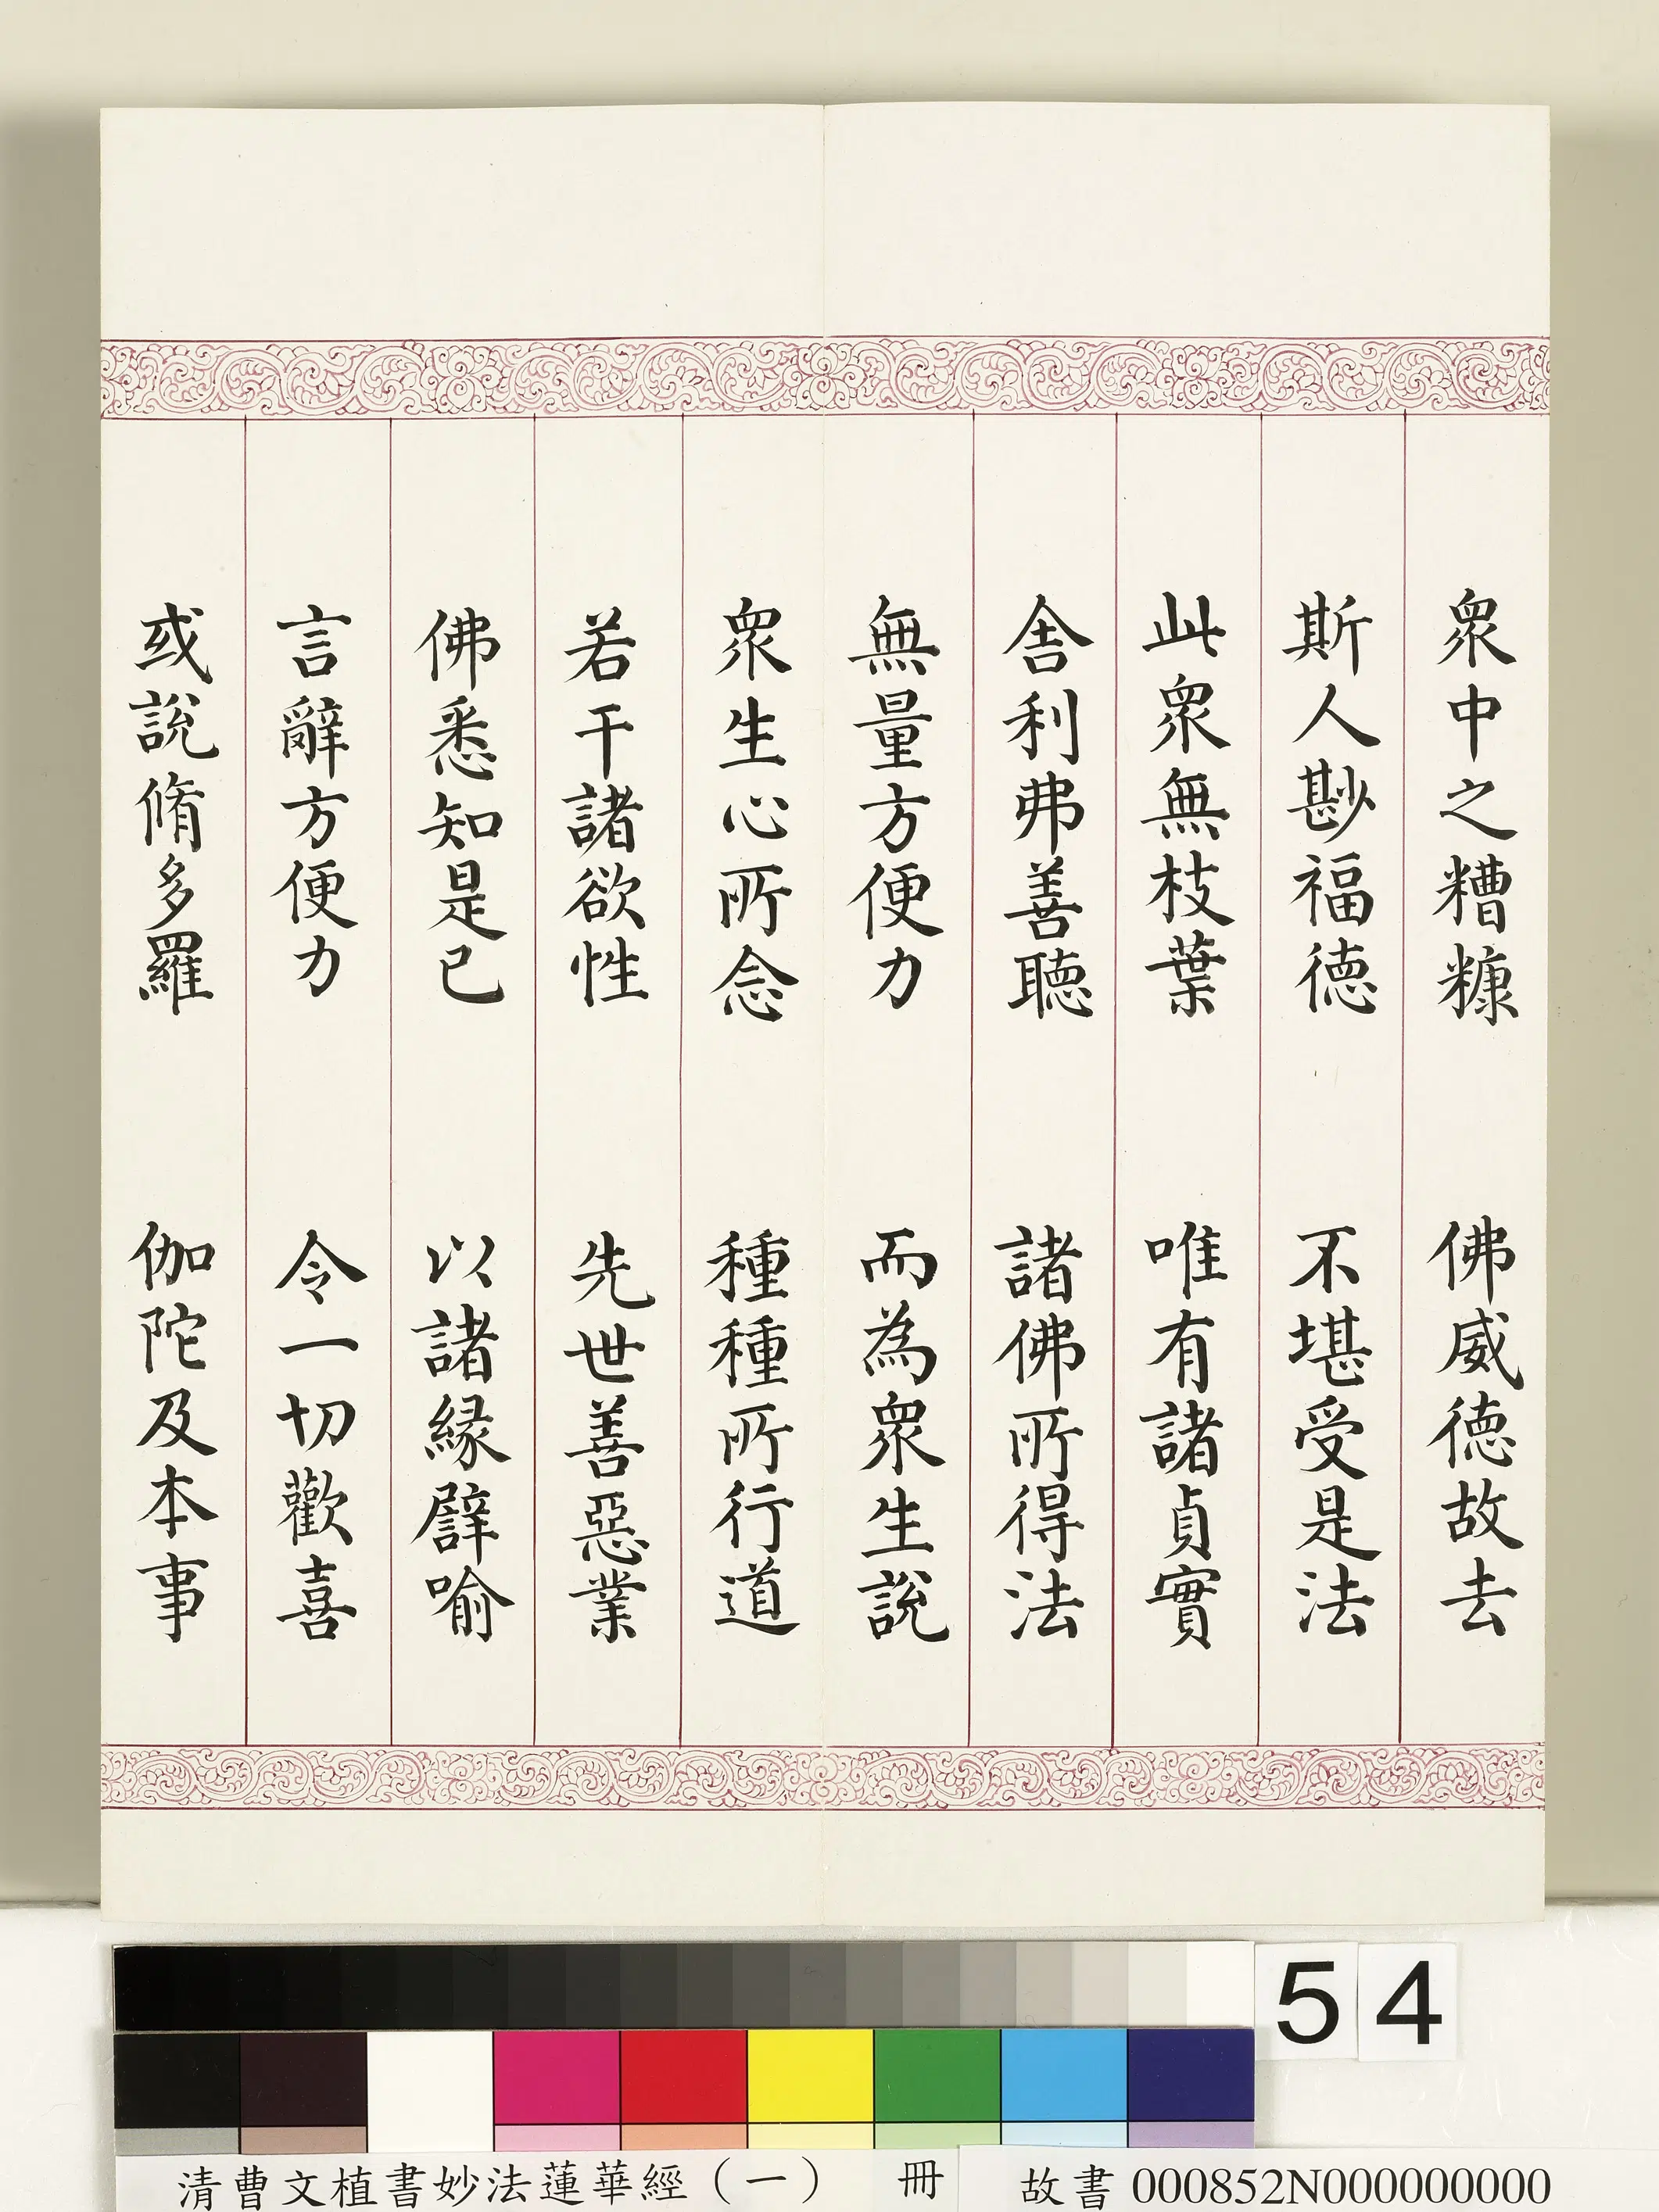 眾中之糟糠　佛威德故去
斯人尠福德　不堪受是法
此眾無枝葉　唯有諸貞實
舍利弗善聽　諸佛所得法
無量方便力　而為眾生說
眾生心所念　種種所行道
若干諸欲性　先世善惡業
佛悉知是已　以諸緣譬喻
言辭方便力　令一切歡喜
或說脩多羅　伽陀及本事
54
清曹文植書妙法蓮華經（一）　冊　故書 000852N000000000